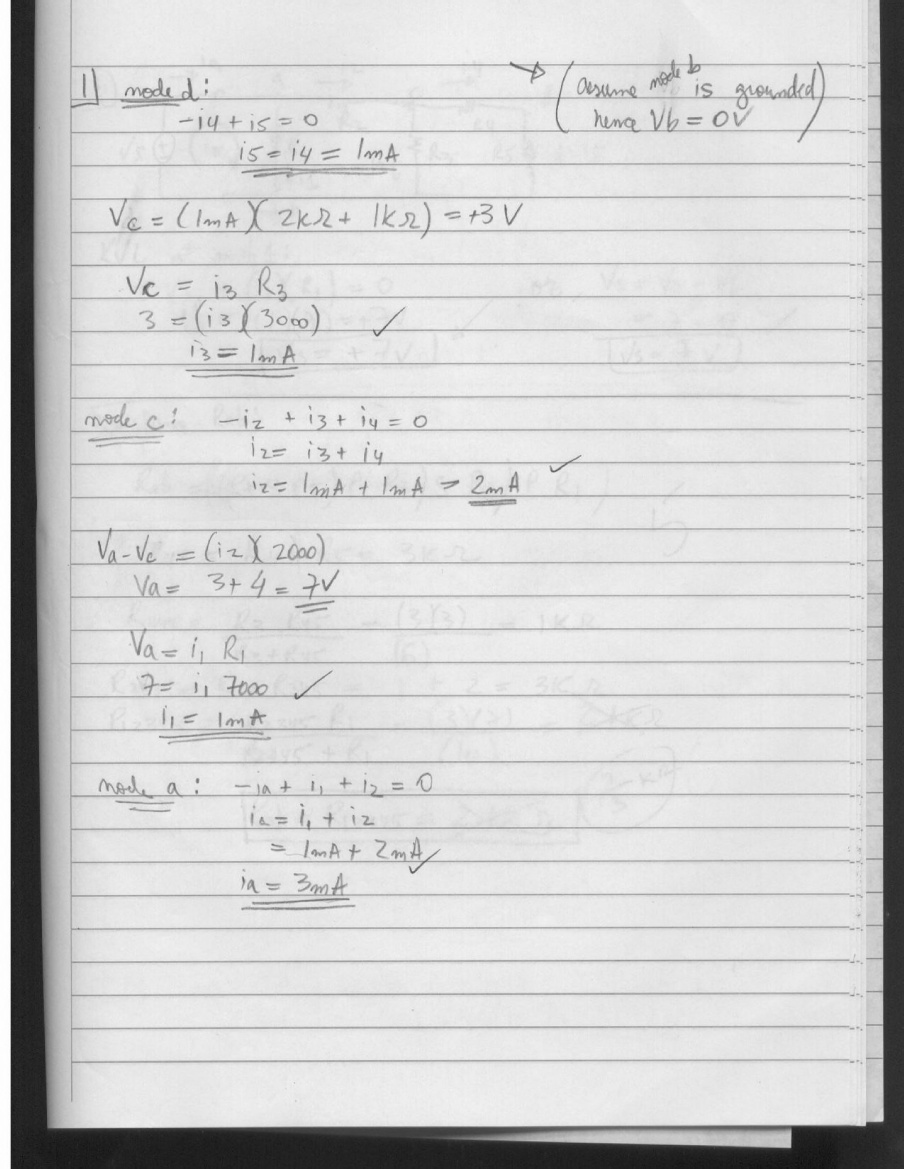 1] node d:
→ (assume node b is grounded
hence Vb = 0V)
-i4 + i5 = 0
i5 = i4 = 1mA
Vc = (1mA)(2KΩ + 1KΩ) = +3 V
Vc = i3 R3
3 = (i3)(3000) ✓
i3 = 1mA
node c: -i2 + i3 + i4 = 0
i2 = i3 + i4
i2 = 1mA + 1mA = 2mA ✓
Va - Vc = (i2)(2000)
Va = 3 + 4 = 7V
Va = i1 R1
7 = i1 7000 ✓
i1 = 1mA
node a: -ia + i1 + i2 = 0
ia = i1 + i2
= 1mA + 2mA ✓
ia = 3mA